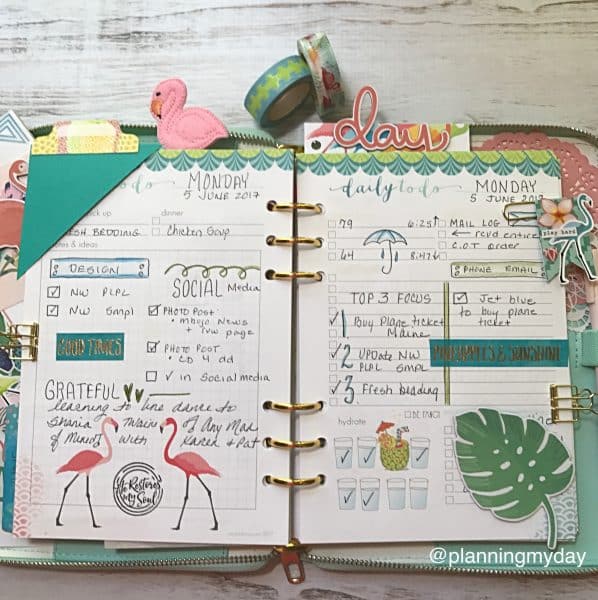 day
to do
MONDAY
5 JUNE 2017
pick up
dinner
FRESH BEDDING
Chicken Soup
notes & ideas
DESIGN
NW PLPL
NW Smpl
GOOD TIMES
SOCIAL Media
PHOTO POST
• mbojo News
+ TVW page
PHOTO POST
• CD 4 dd
✓ in Social media
GRATEFUL
learning to line dance to
Shania Twain of Any Man
of Mine with Karen & Pat
He Restores
My Soul
daily to do
MONDAY
5 JUNE 2017
79
6:25↑
64
8:47↓
TOP 3 FOCUS
1 Buy Plane ticket
Maine
2 UPDATE NW
PLPL SMPL
3 Fresh bedding
hydrate
MAIL LOG
← rcvd entire
C.O.T order
play hard
PHONE EMAIL
Jet blue
to buy plane
ticket
& SUNSHINE
@planningmyday